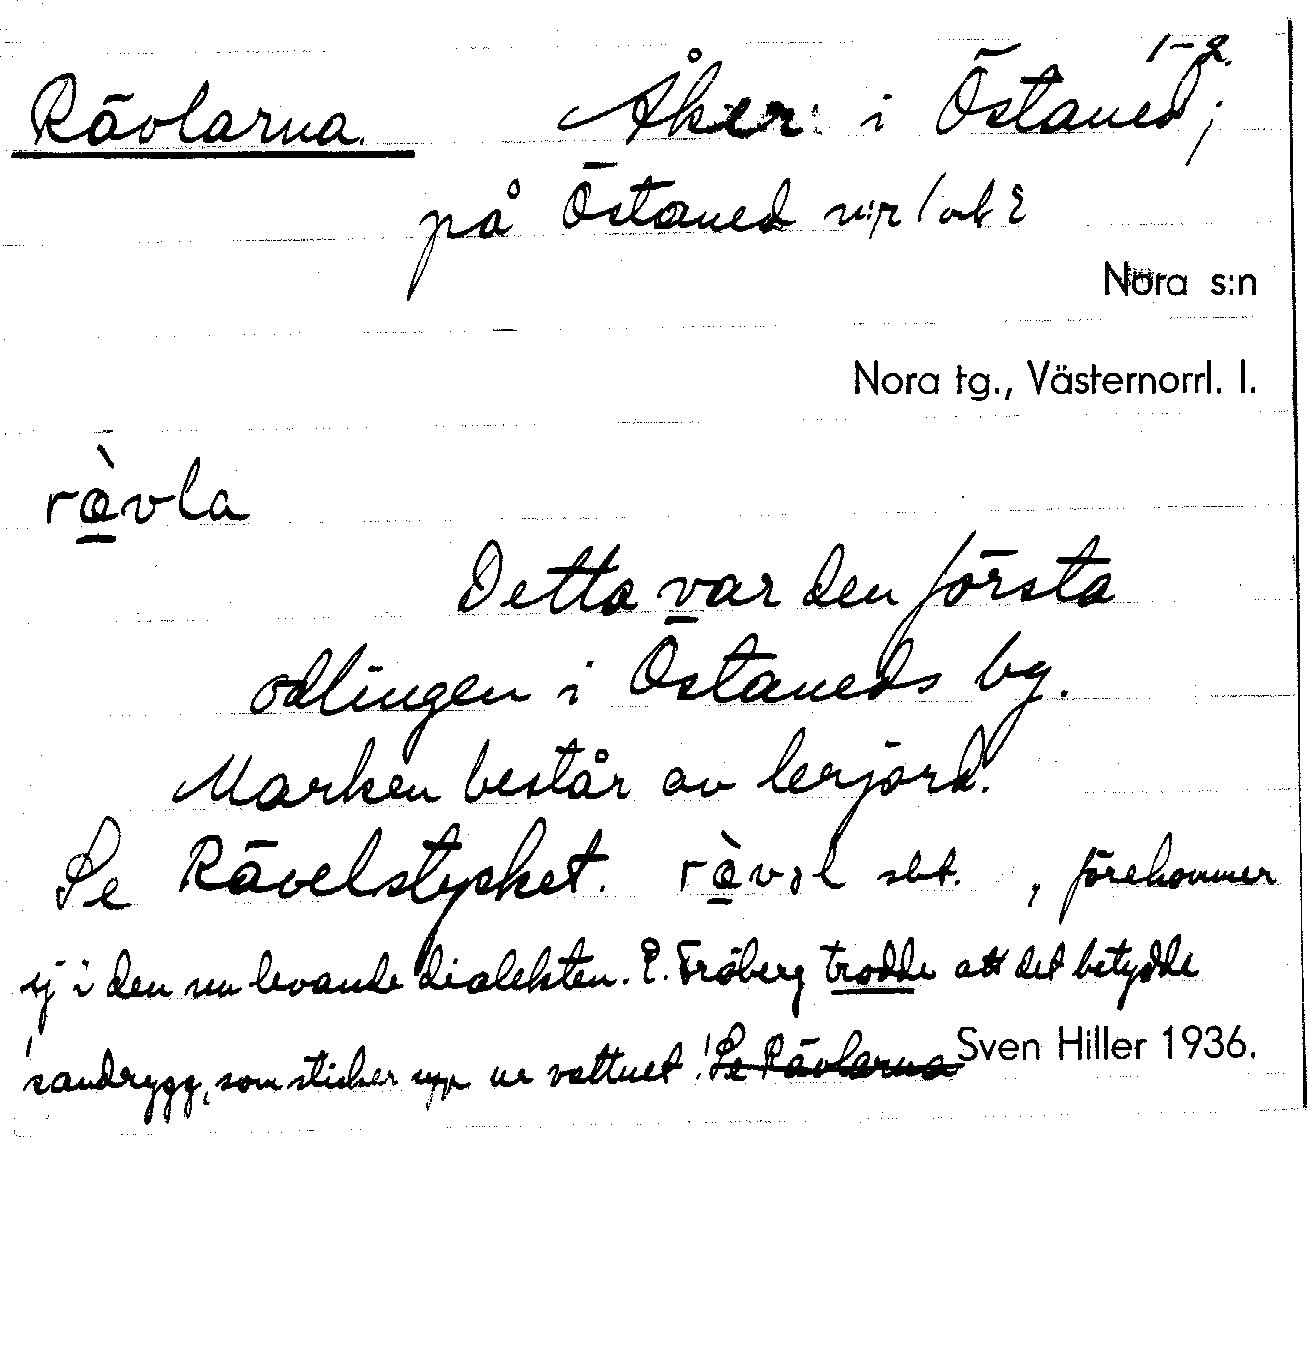 Rävlarna. Åker i Östaned 1-2;
på Östaned n:r 1 och 2
Nora s:n
Nora tg., Västernorrl. l.
rà̱vla
Detta var den första
odlingen i Östaneds by.
Marken består av lerjord.
Se Rävelstycket. rà̱vəl sbt. , förekommer
ej i den nu levande dialekten. E. Fröberg trodde att det betydde
'sandrygg, som sticker upp ur vattnet'. Se Rävlarna
Sven Hiller 1936.